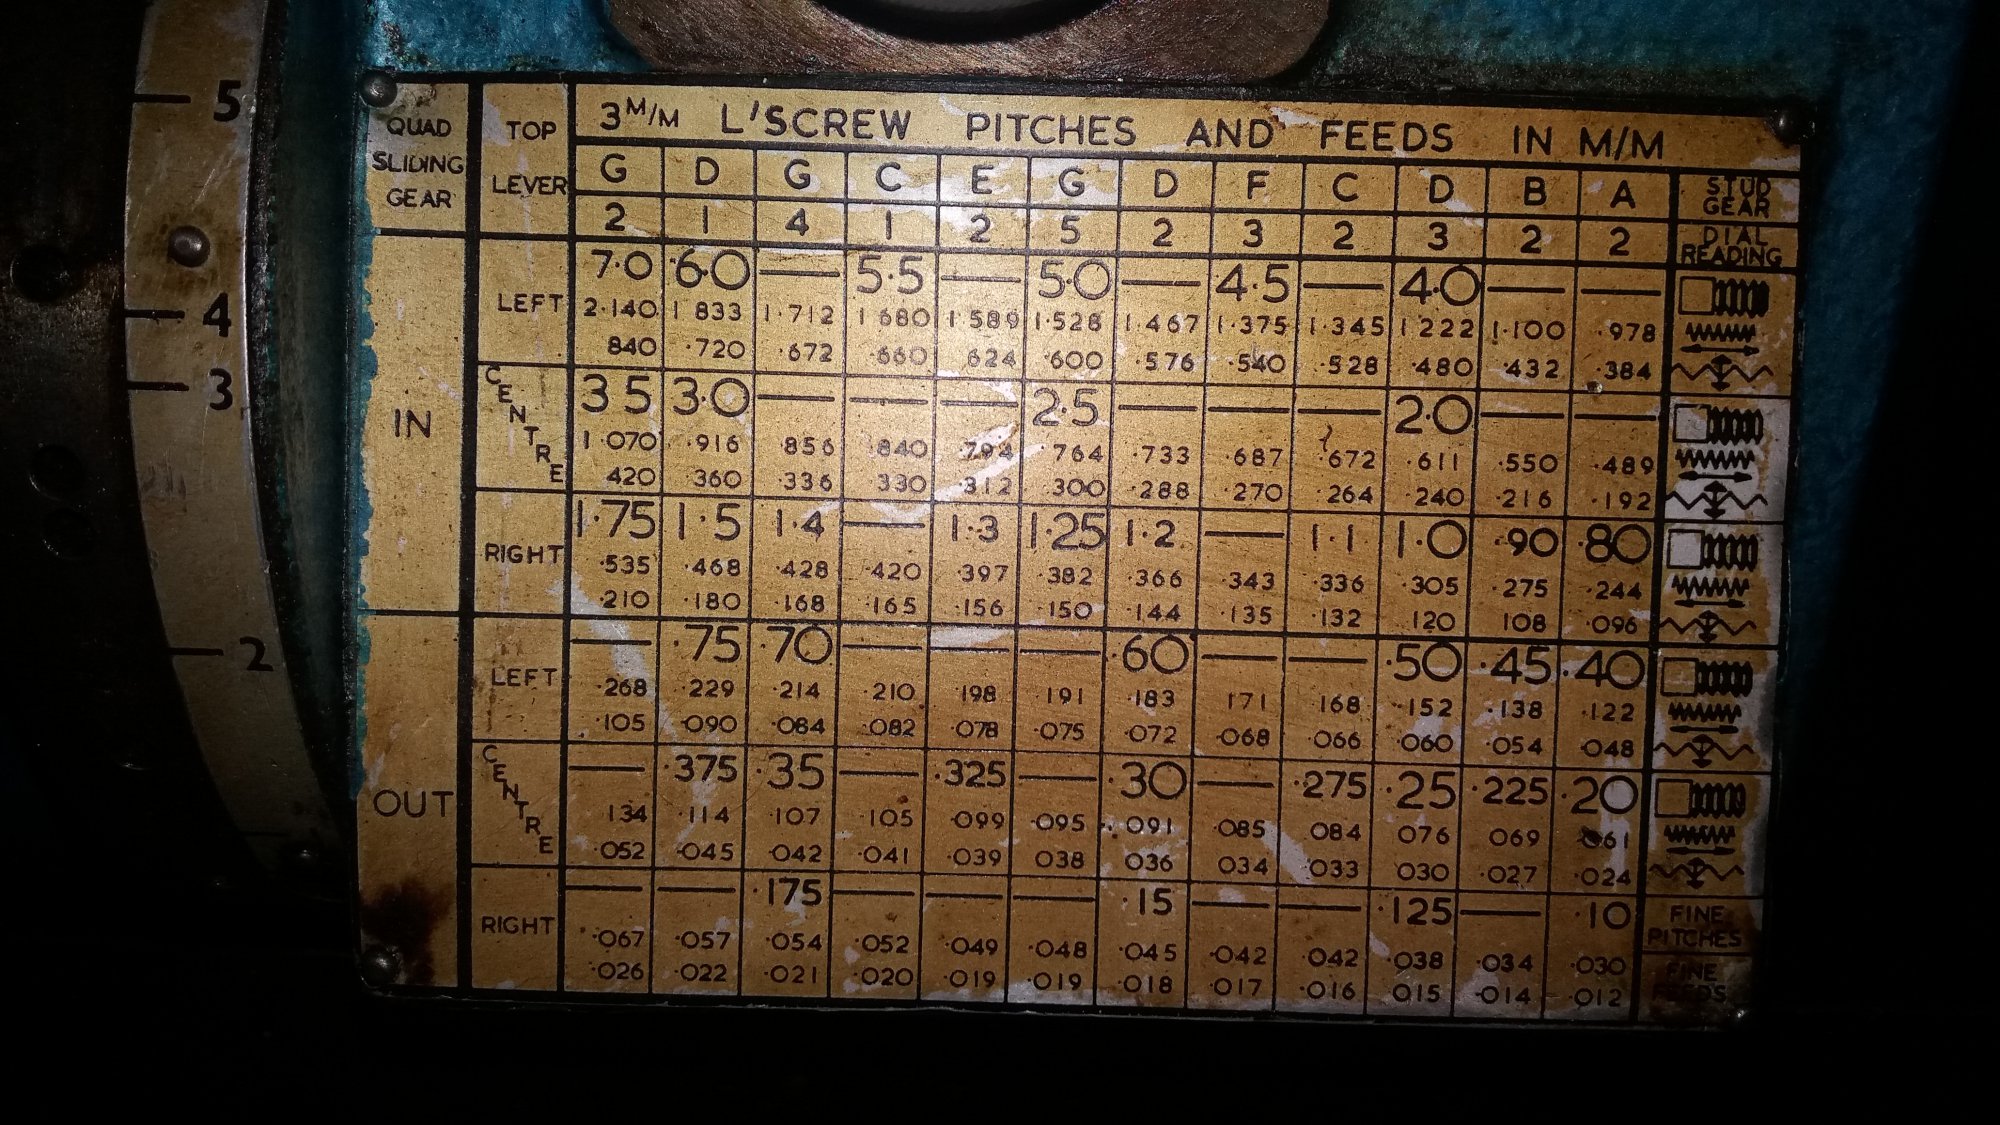 5
4
3
2
QUAD SLIDING GEAR
TOP LEVER
3 M/M L'SCREW PITCHES AND FEEDS IN M/M
G D G C E G D F C D B A STUD GEAR
2 1 4 1 2 5 2 3 2 3 2 2 DIAL READING
IN
LEFT
7.0 6.0 — 5.5 — 5.0 — 4.5 — 4.0 — —
2.140 1 833 1.712 1 680 1 589 1.528 1.467 1.375 1.345 1 222 1.100 .978
840 .720 .672 .660 624 .600 .576 .540 .528 .480 .432 .384
CENTRE
3 5 3.0 — — — 2.5 — — — 2.0 — —
1 070 .916 .856 .840 .794 .764 .733 .687 .672 .611 .550 .489
420 .360 .336 330 .312 .300 .288 .270 .264 .240 .216 .192
RIGHT
1.75 1.5 1.4 — 1.3 1.25 1.2 — 1.1 1.0 .90 .80
.535 .468 .428 .420 .397 .382 .366 .343 .336 .305 .275 .244
.210 .180 .168 .165 .156 .150 .144 .135 .132 120 108 .096
OUT
LEFT
— .75 .70 — — — .60 — — .50 .45 .40
.268 .229 .214 .210 .198 191 .183 171 .168 .152 .138 .122
.105 .090 .084 .082 .078 .075 .072 .068 .066 .060 .054 .048
CENTRE
— .375 .35 — .325 — .30 — .275 .25 .225 .20
134 .114 .107 .105 .099 .095 .091 .085 084 076 .069 .061
.052 .045 .042 .041 .039 038 036 034 .033 030 .027 .024
RIGHT
— — .175 — — — .15 — — .125 — .10 FINE PITCHES
.067 .057 .054 .052 .049 .048 .045 .042 .042 .038 .034 .030
.026 .022 .021 .020 .019 .019 .018 .017 .016 015 .014 .012 FINE FEEDS